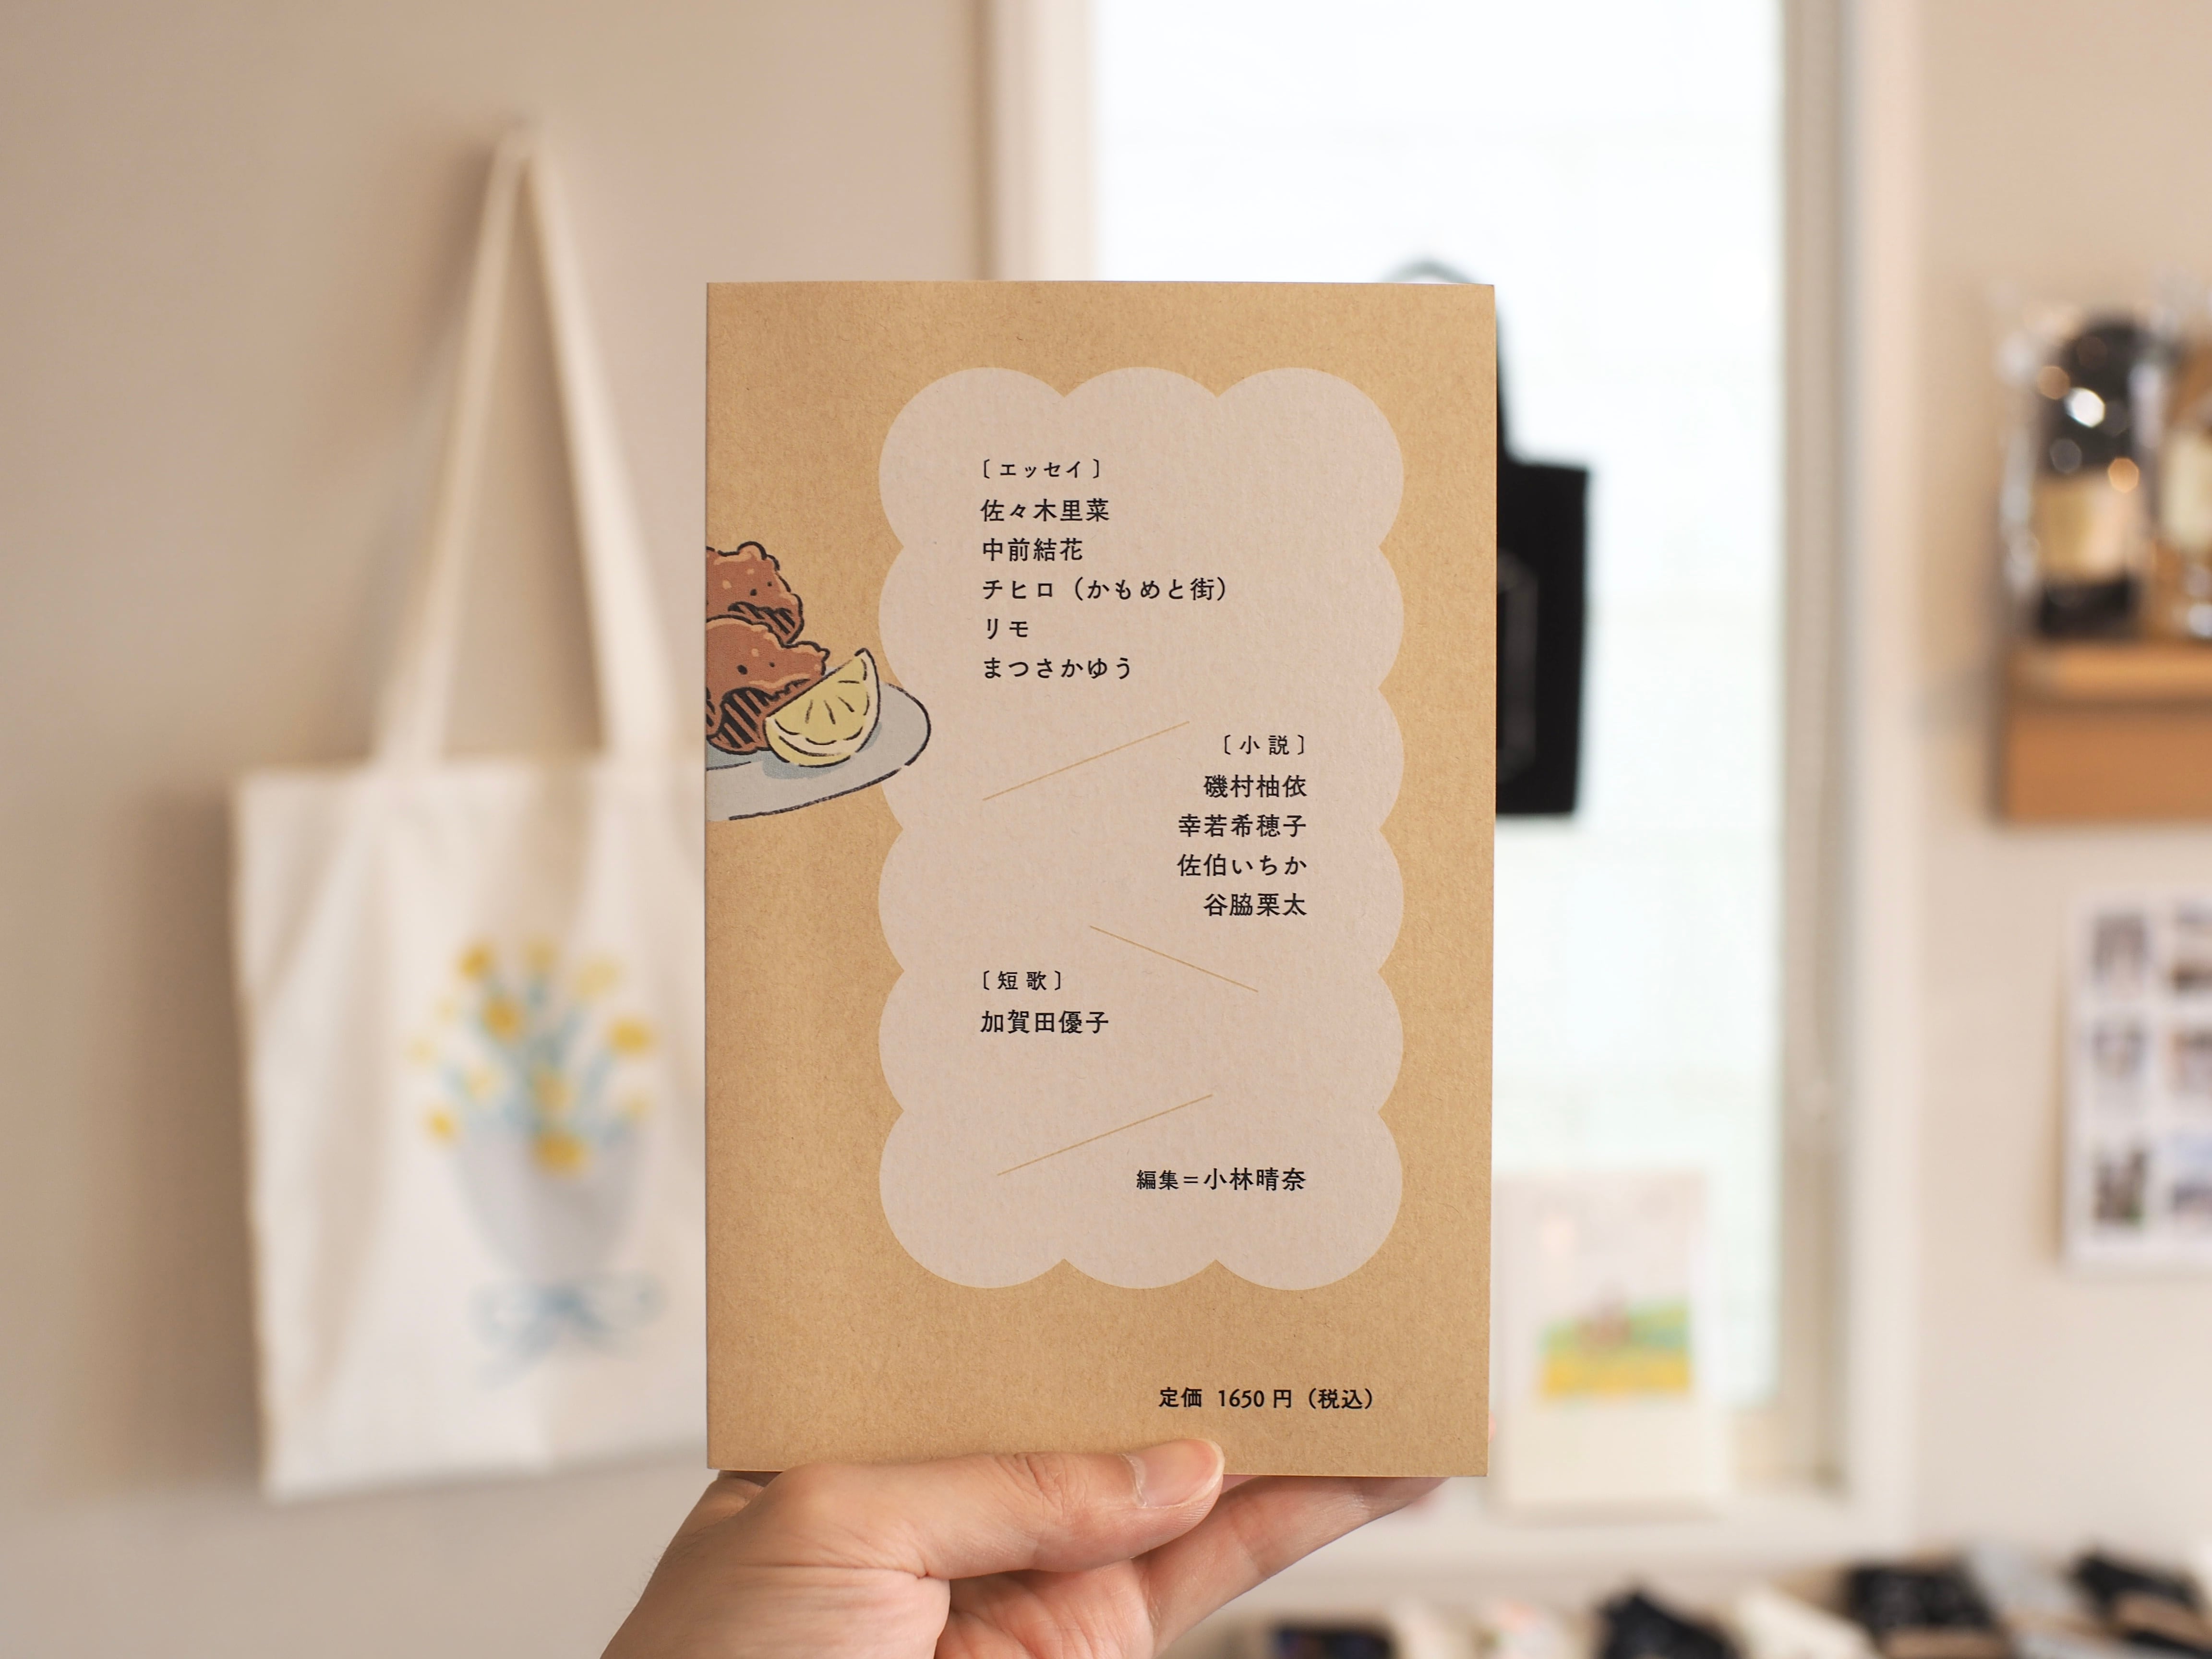 〔エッセイ〕
佐々木里菜
中前結花
チヒロ（かもめと街）
リモ
まつさかゆう
〔小説〕
磯村柚依
幸若希穂子
佐伯いちか
谷脇栗太
〔短歌〕
加賀田優子
編集＝小林晴奈
定価 1650円（税込）